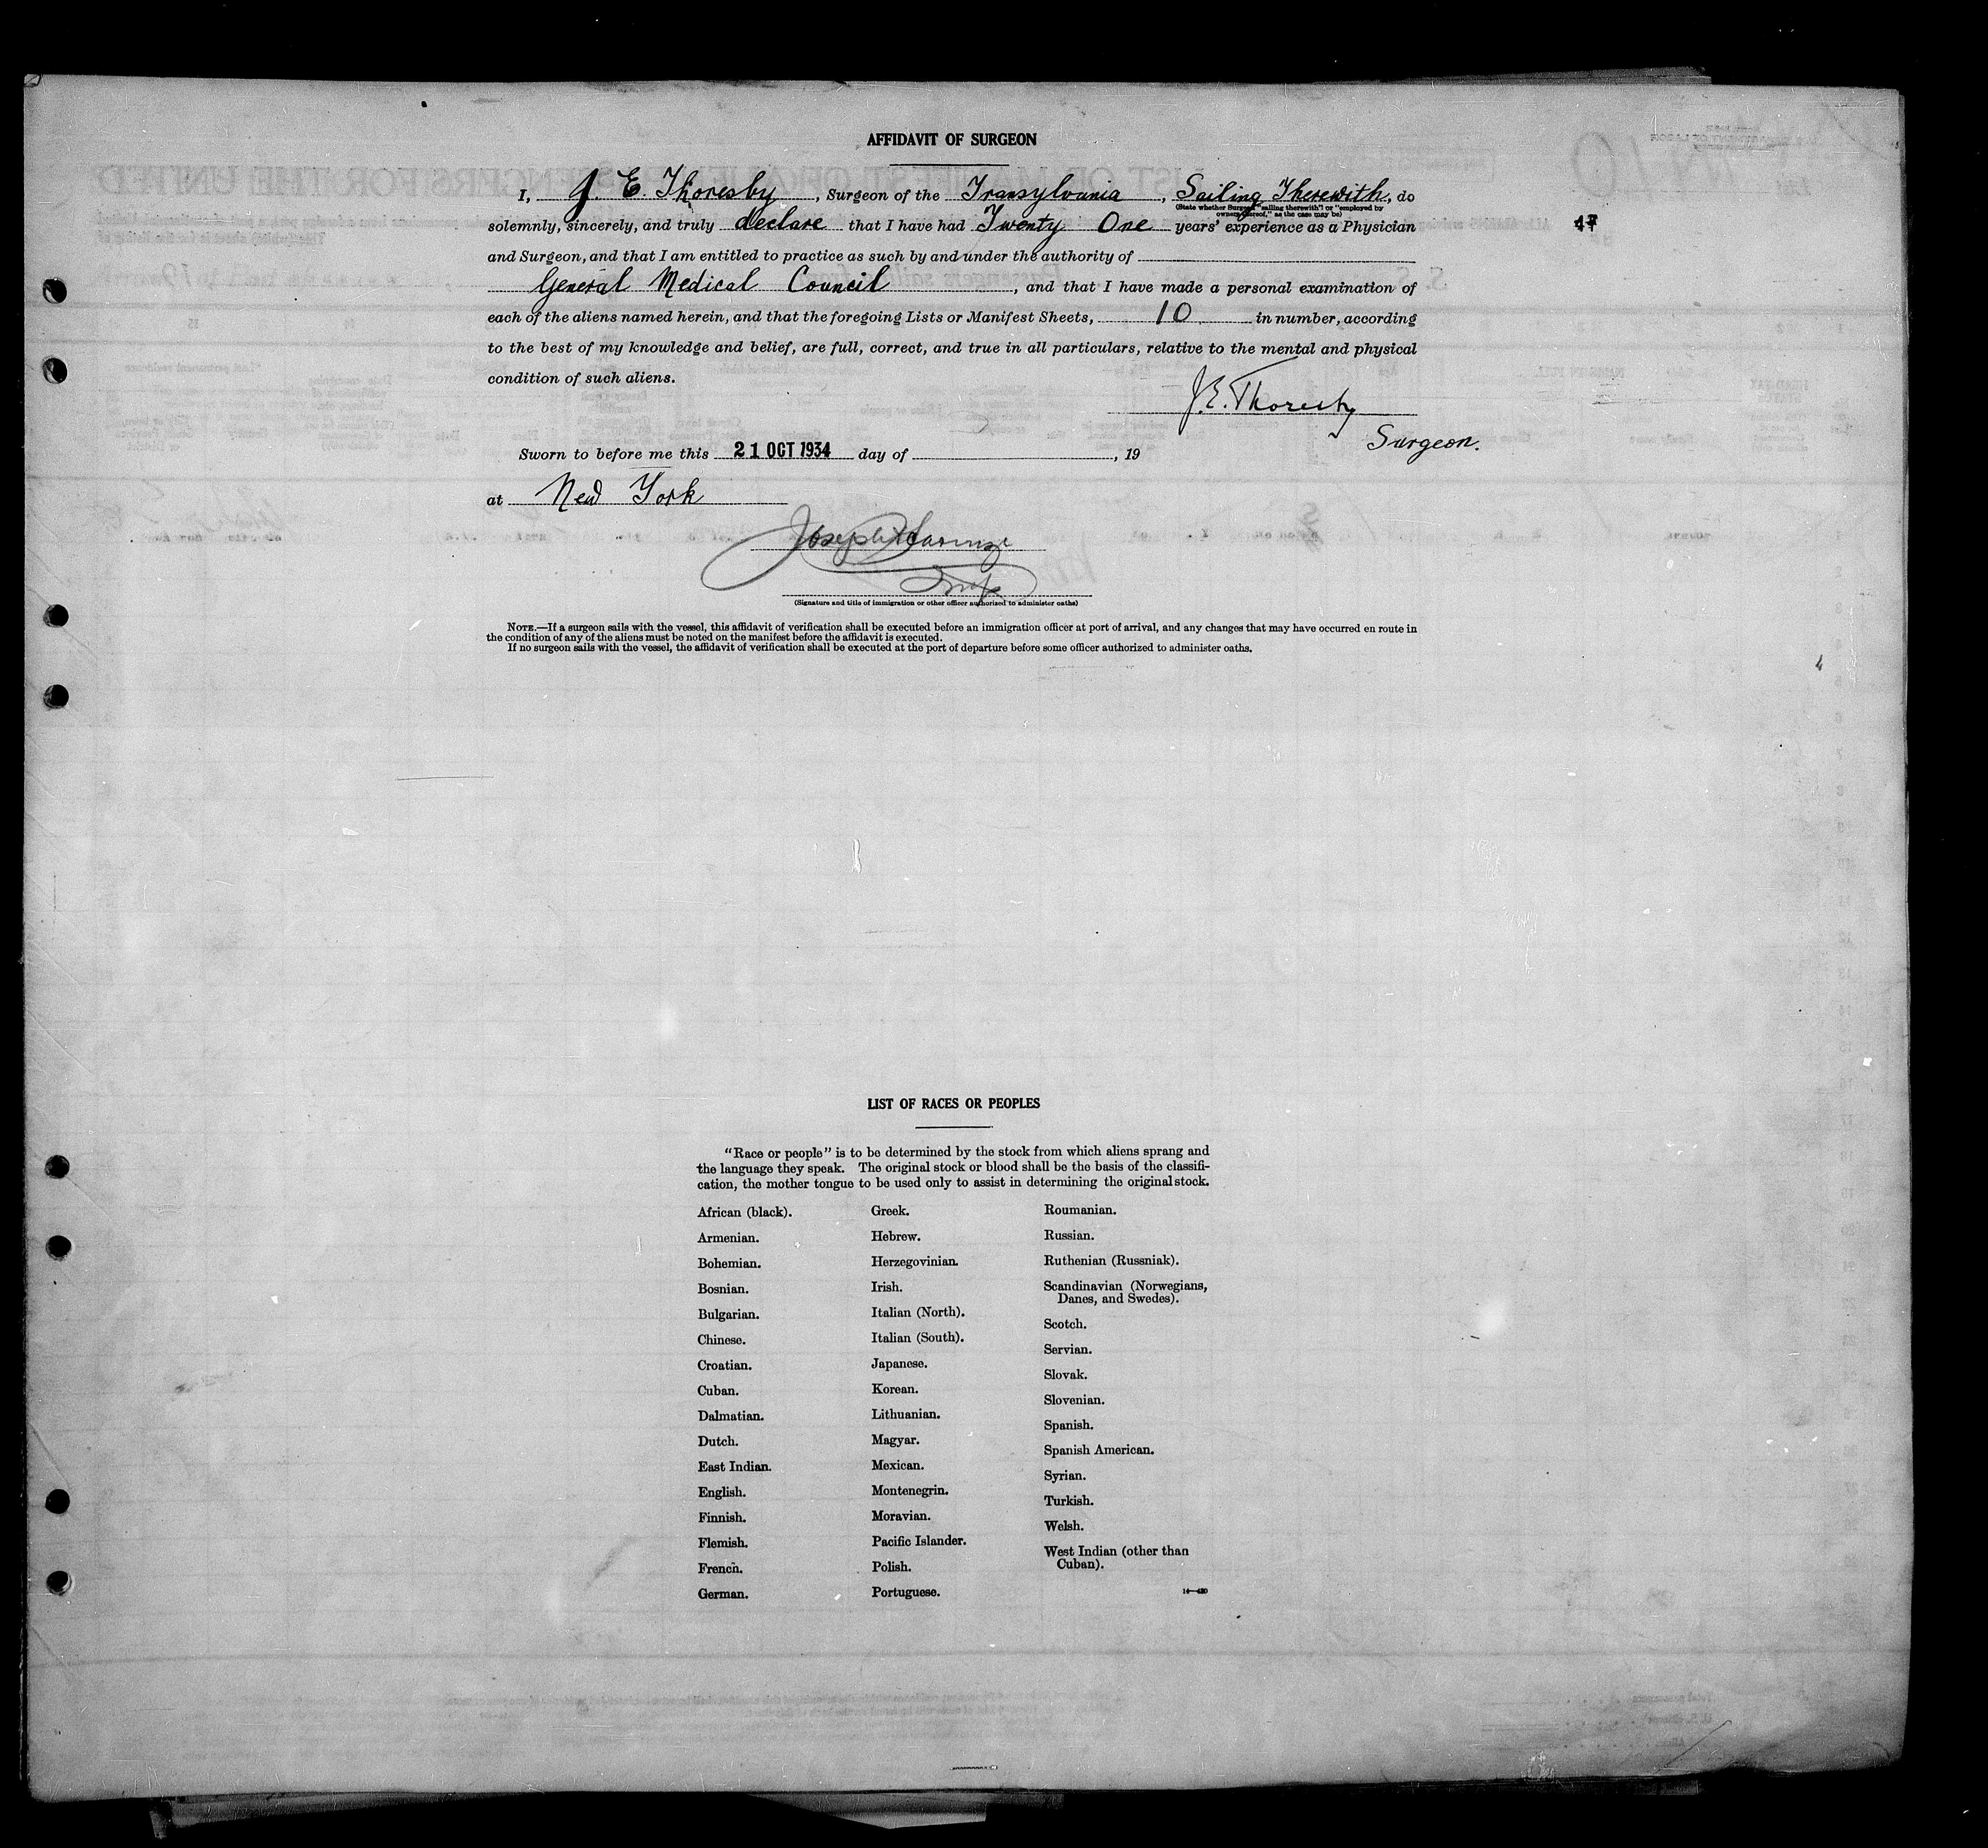 AFFIDAVIT OF SURGEON
I, J. E. Thoresby, Surgeon of the Transylvania, Sailing Therewith, do
(State whether Surgeon "sailing therewith" or "employed by
owners thereof," as the case may be)
solemnly, sincerely, and truly declare that I have had Twenty One years' experience as a Physician
47
and Surgeon, and that I am entitled to practice as such by and under the authority of
General Medical Council, and that I have made a personal examination of
each of the aliens named herein, and that the foregoing Lists or Manifest Sheets, 10 in number, according
to the best of my knowledge and belief, are full, correct, and true in all particulars, relative to the mental and physical
condition of such aliens.
J.E. Thoresby
Surgeon.
Sworn to before me this 21 OCT 1934 day of , 19
at New York
Joseph
(Signature and title of immigration or other officer authorized to administer oaths)
NOTE.—If a surgeon sails with the vessel, this affidavit of verification shall be executed before an immigration officer at port of arrival, and any changes that may have occurred en route in
the condition of any of the aliens must be noted on the manifest before the affidavit is executed.
If no surgeon sails with the vessel, the affidavit of verification shall be executed at the port of departure before some officer authorized to administer oaths.
LIST OF RACES OR PEOPLES
"Race or people" is to be determined by the stock from which aliens sprang and
the language they speak. The original stock or blood shall be the basis of the classifi-
cation, the mother tongue to be used only to assist in determining the original stock.
African (black).
Armenian.
Bohemian.
Bosnian.
Bulgarian.
Chinese.
Croatian.
Cuban.
Dalmatian.
Dutch.
East Indian.
English.
Finnish.
Flemish.
French.
German.
Greek.
Hebrew.
Herzegovinian.
Irish.
Italian (North).
Italian (South).
Japanese.
Korean.
Lithuanian.
Magyar.
Mexican.
Montenegrin.
Moravian.
Pacific Islander.
Polish.
Portuguese.
Roumanian.
Russian.
Ruthenian (Russniak).
Scandinavian (Norwegians,
Danes, and Swedes).
Scotch.
Servian.
Slovak.
Slovenian.
Spanish.
Spanish American.
Syrian.
Turkish.
Welsh.
West Indian (other than
Cuban).
14—430